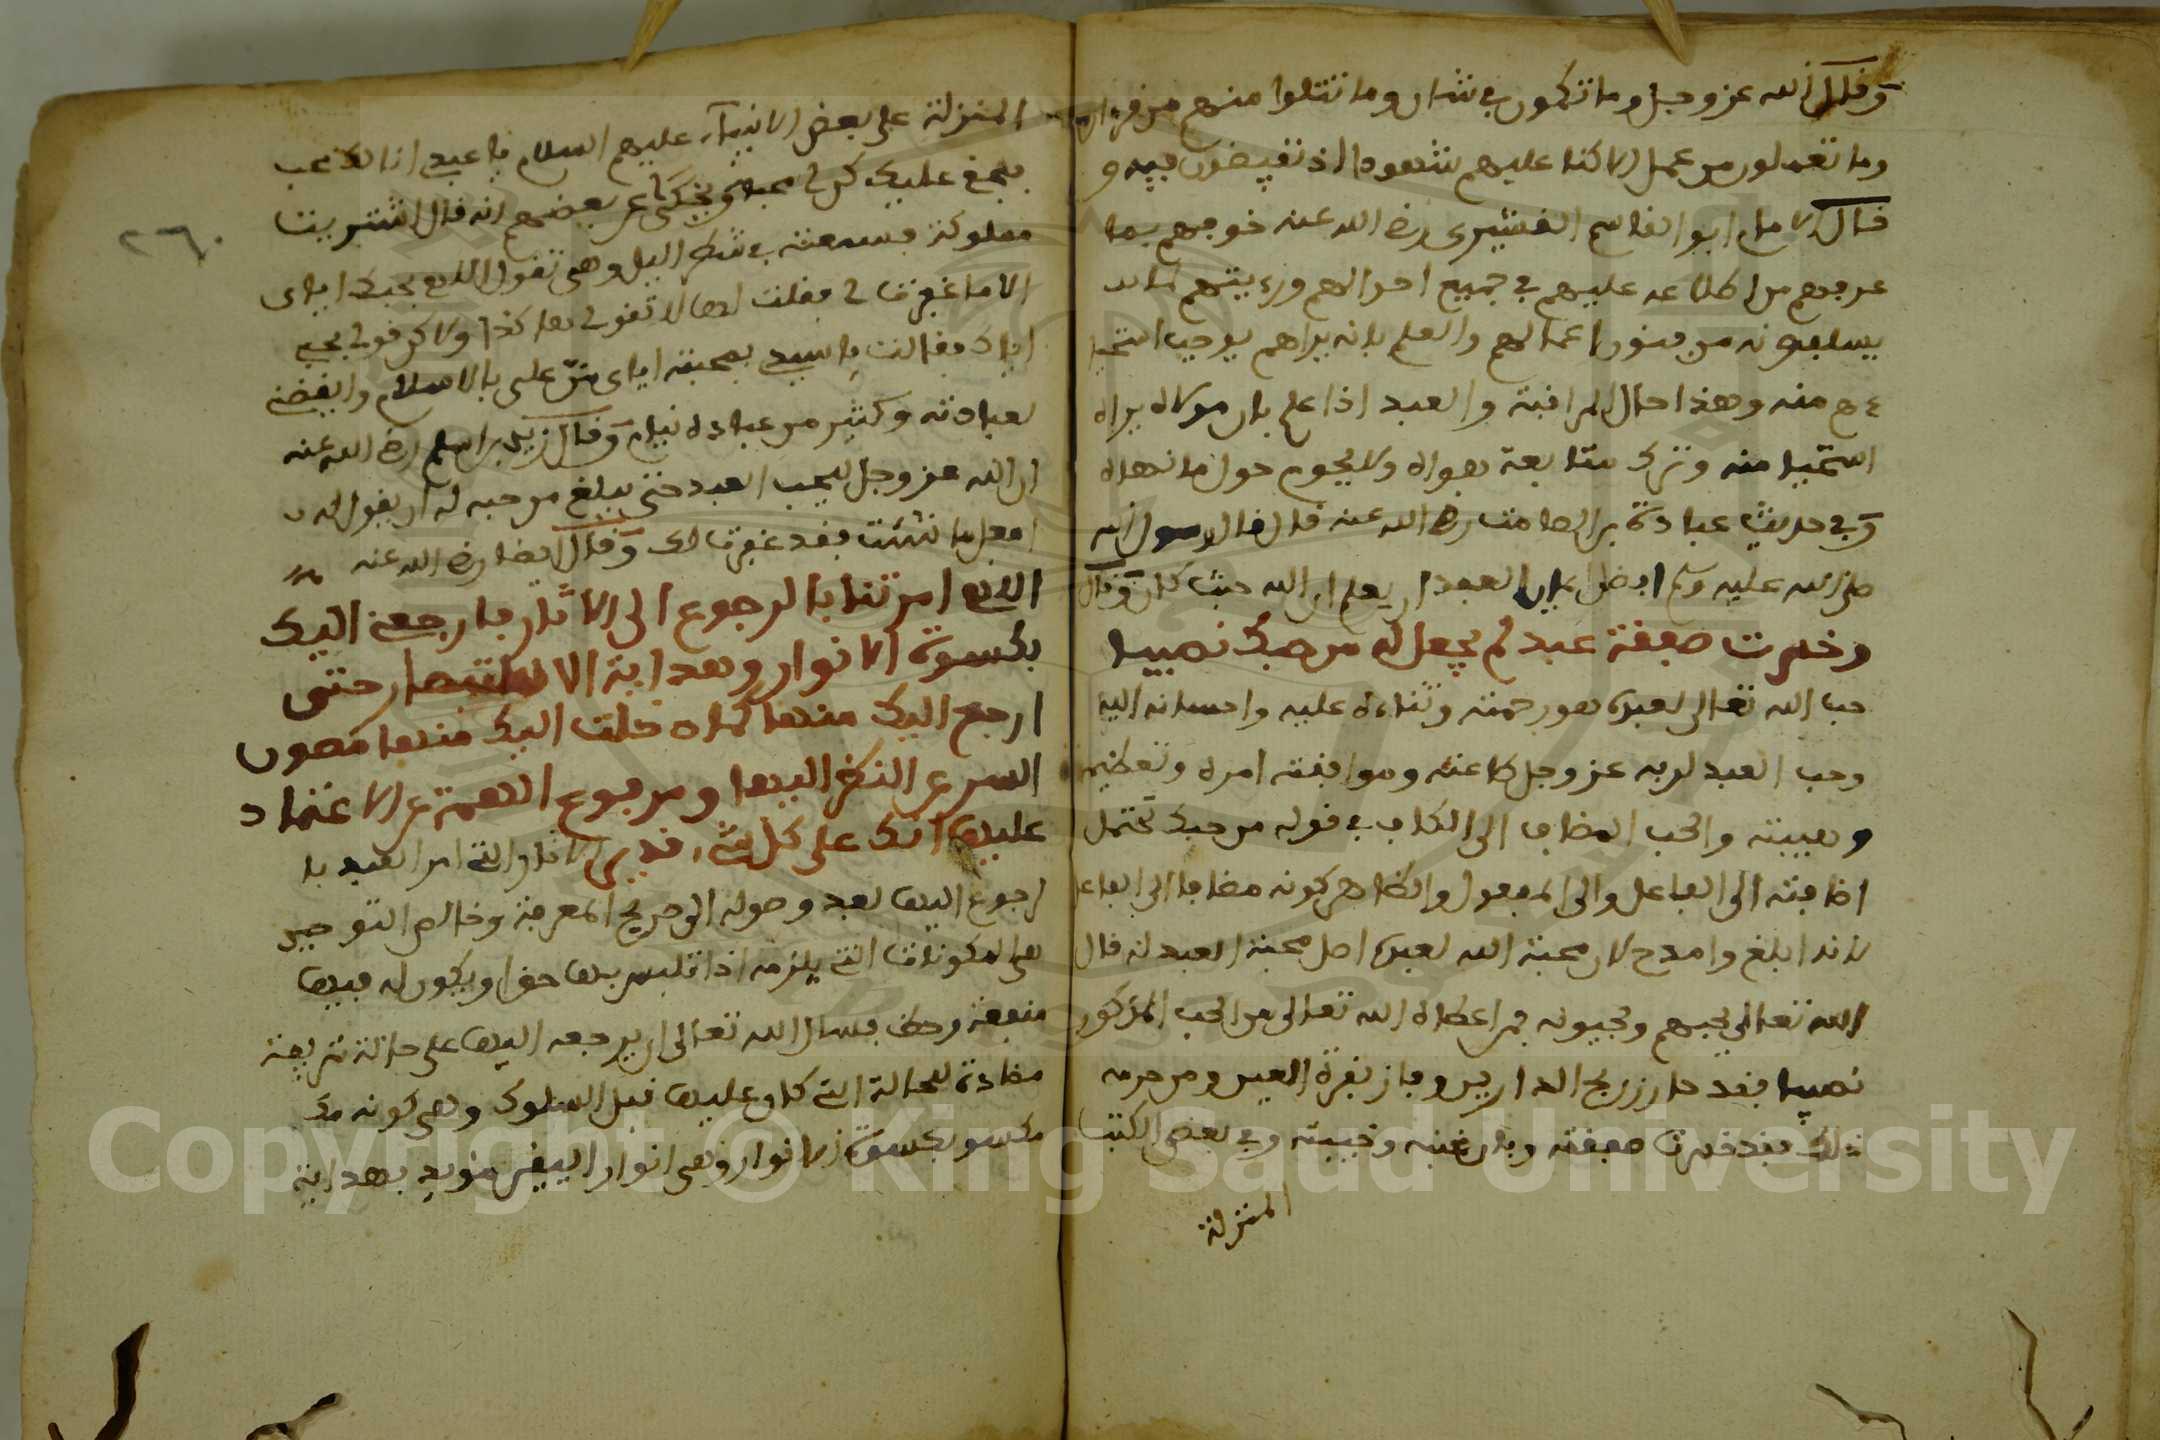 وقال الله عز وجل وما تكون في شان وما تتلوا منهم من قران
وما تعملون من عمل الا كنا عليهم شهودا اذ تفيضون فيه و
قال الامام ابو القاسم القشيري رضي الله عنه خوفهم بما
عرفهم من اطلاعه عليهم في جميع احوالهم ورؤيتهم لما
يسلفونه من فنون اعمالهم والعلم بانه يراهم يوجب استحيا
ءهم منه وهذا حال المراقبة والعبد اذا علم بان مولاه يراه
استحيا منه وترك متابعة هواه ولا يحوم حول ما نهاه
وفي حديث عبادة بن الصامت رضي الله عنه قال قال رسول الله
صلى الله عليه وسلم افضل ايمان العبد ان يعلم ان الله حيث كان وقال
وخسرت صفقة عبد لم يجعل له من حبك نصيبا
حب الله تعالى لعبده هو رحمته وثناءه عليه واحسانه اليه
وحب العبد لربه عز وجل طاعته وموافقته امره وتعظيمه
وهيبته والحب المضاف الى الكاف في قوله من حبك تحتمل
اضافته الى الفاعل والى المفعول والظاهر كونه مضافا الى الفاعل
لانه ابلغ وامدح لان محبة الله لعبده اصل محبة العبد له قال
الله تعالى يحبهم ويحبونه فمن اعطاه الله تعالى من الحب المذكور
نصيبا فقد حاز ربح الدارين وفاز بقرة العين ومن حرمه
ذلك فقد خسرت صفقته وبان غبنه وخيبته وفي بعض الكتب
المنزلة
٢٦٠
المنزلة على بعض الانبياء عليهم السلام يا عبدي انا لك محب
فبحق عليك كن لي محبا ويحكى عن بعضهم انه قال اشتريت
مملوكة فسمعتها في شطر الليل وهي تقول اللهم بحبك اياى
الا ما غفرت لي فقلت لها لا تقولي هكذا ولاكن قولي بحبي
اياك فقالت يا سيدي بمحبته اياى من علي بالاسلام وايقضني
لعبادته وكثير من عباده نيام وقال زيد بن اسلم رضي الله عنه
ان الله عز وجل ليحب العبد حتى يبلغ من حبه له ان يقول له
افعل ما شئت فقد غفرت لك وقال ايضا رضي الله عنه
اللهم امرتنا بالرجوع الى الاثار فارجعني اليك
بكسوة الانوار وهداية الاستبصار حتى
ارجع اليك منها كما دخلت اليك منها مصون
السر عن النظر اليها ومرفوع الهمة عن الاعتماد
عليها انك على كل شيء قدير الاثار التي امر العبد با
لرجوع اليها بعد وصوله الى صريح المعرفة وخالص التوحيد
هي المكونات التي يلزمه اذا تلبس بها حق او يكون له فيها
منفعة وحظ فسال الله تعالى ان يرجعه اليها على حالة شريفة
مضادة للحالة التي كان عليها قبل السلوك وهي كونه
مكسو بكسوة الانوار وهي انوار اليقين مؤيد بهداية
Copyright © King Saud University